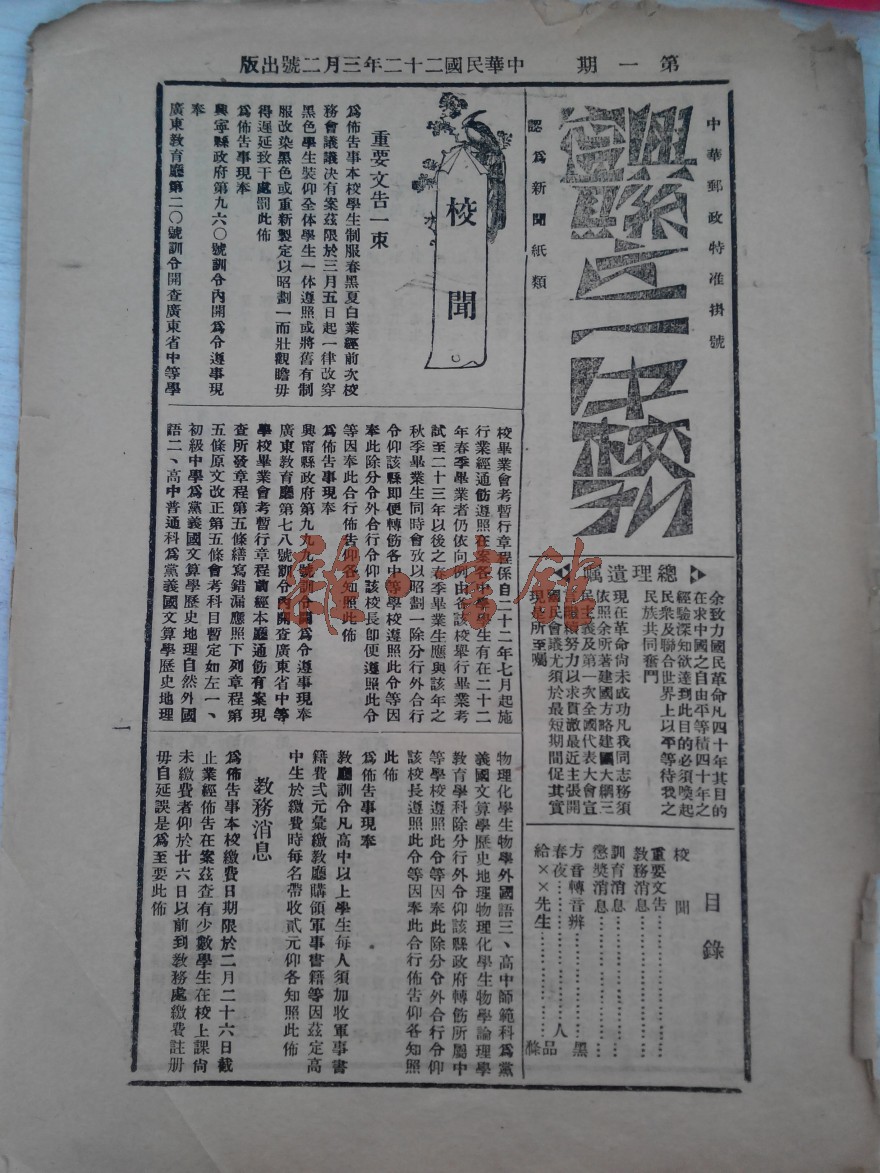 第一期　中華民國二十二年三月二號出版
中華郵政特准掛號
認為新聞紙類
興寧縣立一中校刊
總理遺囑
余致力國民革命凡四十年其目的
在求中國之自由平等積四十年之
經驗深知欲達到此目的必須喚起
民衆及聯合世界上以平等待我之
民族共同奮鬥
現在革命尚未成功凡我同志務須
依照余所著建國方略建國大綱三
民主義及第一次全國代表大會宣
繼續努力以求貫澈最近主張開
國民會議尤須於最短期間促其實
現是所至囑
目錄
校聞
重要文告
教務消息
訓育消息
懲獎消息
方音轉音辨 黑
春夜 人
給××先生
校聞
重要文告一束
為佈告事本校學生制服春黑夏白業經前次校
務會議議決有案茲限於三月五日起一律改穿
黑色學生裝仰全体學生一体遵照或將舊有制
服改染黑色或重新製定以昭劃一而壯觀瞻毋
得遲延致干處罰此佈
為佈告事現奉
興寧縣政府第九六〇號訓令內開為令遵事現
奉
廣東教育廳第二〇號訓令開查廣東省中等學
校畢業會考暫行章程係自二十二年七月起施
行業經通飭遵照在案各中學學生有在二十二
年春季畢業者仍依向例由各該校舉行畢業考
試至二十三年以後之春季畢業生應與該年之
秋季畢業生同時會攷以昭劃一除分行外合行
令仰該縣即便轉飭各中等學校遵照此令等因
奉此除分令外合行令仰該校長即便遵照此令
等因奉此合行佈告仰各知照此佈
為佈告事現奉
興甯縣政府第九九九號訓令開為令遵事現奉
廣東教育廳第七八號訓令內開查廣東省中等
學校畢業會考暫行章程前經本廳通飭有案現
查所發章程第五條繕寫錯漏應照下列章程第
五條原文改正第五條會考科目暫定如左一、
初級中學為黨義國文算學歷史地理自然外國
語二、高中普通科為黨義國文算學歷史地理
物理化學生物學外國語三、高中師範科為黨
義國文算學歷史地理物理化學生物學論理學
教育學科除分行外令仰該縣政府轉飭所屬中
等學校遵照此令等因奉此除分令外合行令仰
該校長遵照此令等因奉此合行佈告仰各知照
此佈
為佈告事現奉
教廳訓令凡高中以上學生每人須加收軍事書
籍費式元彙繳教廳購領軍事書籍等因茲定高
中生於繳費時每名帶收貳元仰各知照此佈
教務消息
為佈告事本校繳費日期限於二月二十六日截
止業經佈告在案茲查有少數學生在校上課尚
未繳費者仰於廿六日以前到教務處繳費註册
毋自延誤是為至要此佈
一